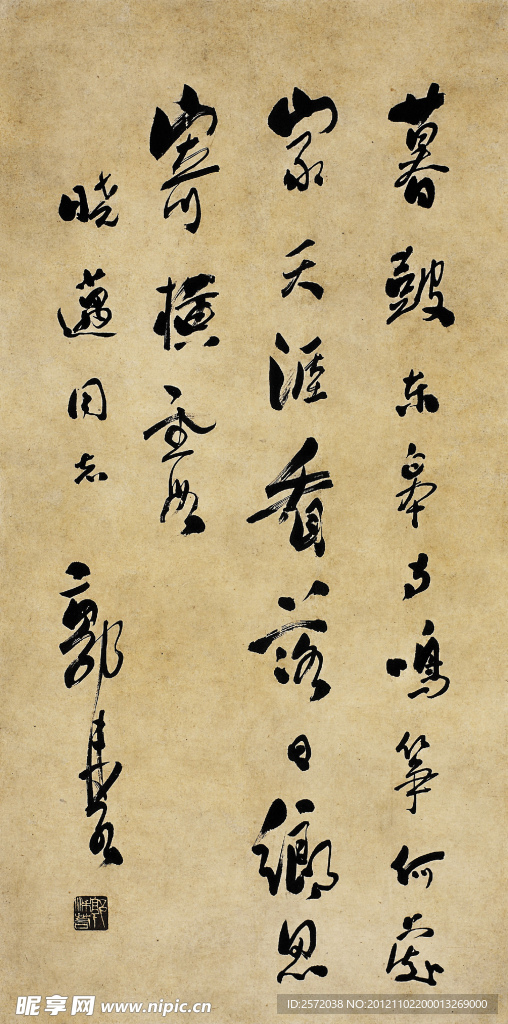 暮鼓东皋寺鳴筝何處
家天涯看落日鄉思
寄横霞
晓邁同志 郭沫若
昵享网 www.nipic.cn
ID:2572038 NO:20121102200013269000